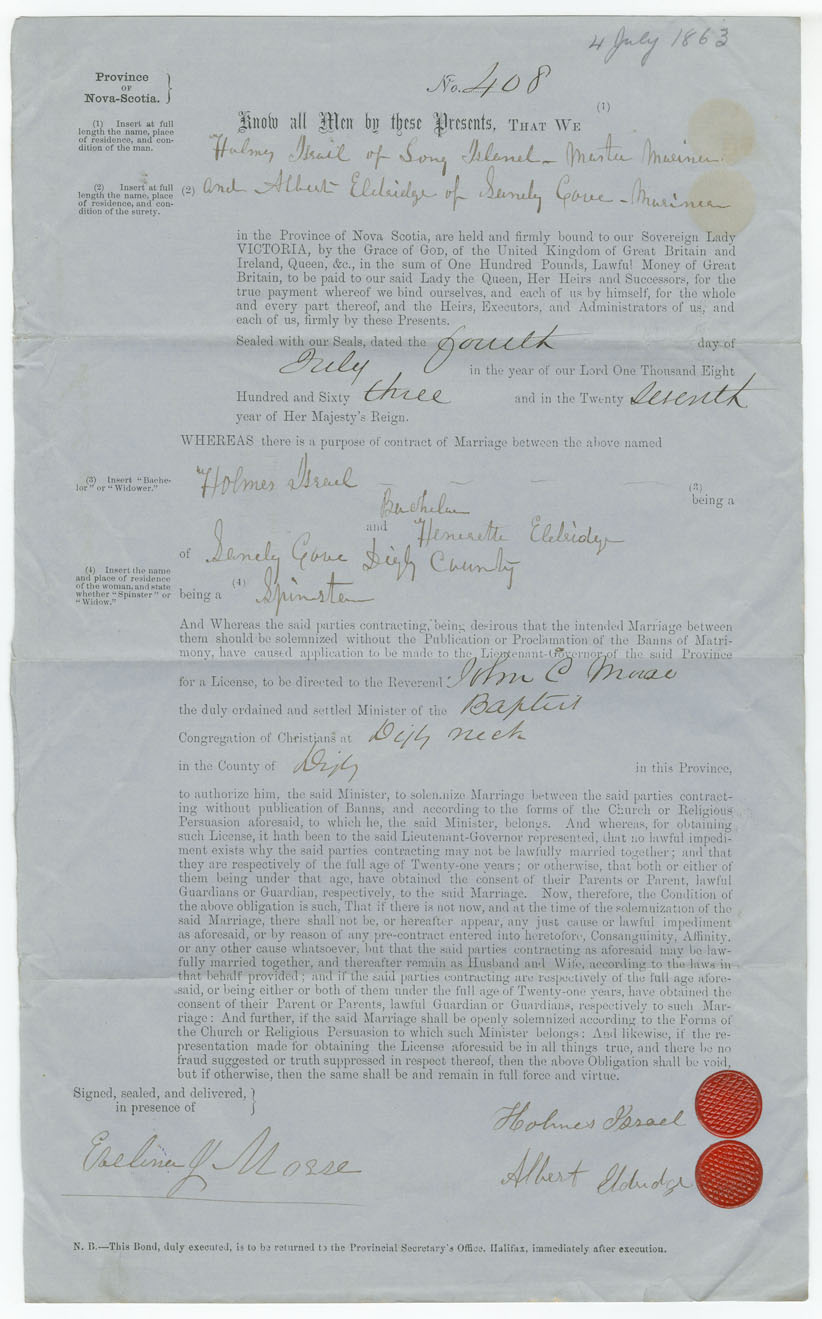 4 July 1863
Province
OF
Nova-Scotia.
No. 408
(1) Insert at full
length the name, place
of residence, and con-
dition of the man.
(1)
Know all Men by these Presents, THAT WE
Holmes Israel of Long Island - Master Mariner
(2) Insert at full
length the name, place
of residence, and con-
dition of the surety.
(2) and Albert Eldridge of Sandy Cove - Mariner
in the Province of Nova Scotia, are held and firmly bound to our Sovereign Lady
VICTORIA, by the Grace of GOD, of the United Kingdom of Great Britain and
Ireland, Queen, &c., in the sum of One Hundred Pounds, Lawful Money of Great
Britain, to be paid to our said Lady the Queen, Her Heirs and Successors, for the
true payment whereof we bind ourselves, and each of us by himself, for the whole
and every part thereof, and the Heirs, Executors, and Administrators of us, and
each of us, firmly by these Presents.
Sealed with our Seals, dated the fourth day of
July in the year of our Lord One Thousand Eight
Hundred and Sixty three and in the Twenty seventh
year of Her Majesty's Reign.
WHEREAS there is a purpose of contract of Marriage between the above named
(3) Insert "Bache-
lor" or "Widower."
Holmes Israel
(3)
being a
Bachelor
and Henerette Eldridge
of Sandy Cove Digby County
(4) Insert the name
and place of residence
of the woman, and state
whether "Spinster" or
"Widow."
being a (4) Spinster
And Whereas the said parties contracting, being desirous that the intended Marriage between
them should be solemnized without the Publication or Proclamation of the Banns of Matri-
mony, have caused application to be made to the Lieutenant-Governor of the said Province
for a License, to be directed to the Reverend John C Morse
the duly ordained and settled Minister of the Baptist
Congregation of Christians at Digby neck
in the County of Digby in this Province,
to authorize him, the said Minister, to solemnize Marriage between the said parties contract-
ing without publication of Banns, and according to the forms of the Church or Religious
Persuasion aforesaid, to which he, the said Minister, belongs. And whereas, for obtaining
such License, it hath been to the said Lieutenant-Governor represented, that no lawful impedi-
ment exists why the said parties contracting may not be lawfully married together; and that
they are respectively of the full age of Twenty-one years; or otherwise, that both or either of
them being under that age, have obtained the consent of their Parents or Parent, lawful
Guardians or Guardian, respectively, to the said Marriage. Now, therefore, the Condition of
the above obligation is such, That if there is not now, and at the time of the solemnization of the
said Marriage, there shall not be, or hereafter appear, any just cause or lawful impediment
as aforesaid, or by reason of any pre-contract entered into heretofore, Consanguinity, Affinity,
or any other cause whatsoever, but that the said parties contracting as aforesaid may be law-
fully married together, and thereafter remain as Husband and Wife, according to the laws in
that behalf provided; and if the said parties contracting are respectively of the full age afore-
said, or being either or both of them under the full age of Twenty-one years, have obtained the
consent of their Parent or Parents, lawful Guardian or Guardians, respectively to such Mar-
riage: And further, if the said Marriage shall be openly solemnized according to the Forms of
the Church or Religious Persuasion to which such Minister belongs: And likewise, if the re-
presentation made for obtaining the License aforesaid be in all things true, and there be no
fraud suggested or truth suppressed in respect thereof, then the above Obligation shall be void,
but if otherwise, then the same shall be and remain in full force and virtue.
Signed, sealed, and delivered,
in presence of
Holmes Israel
Evelina J Morse
Albert Eldridge
N. B.—This Bond, duly executed, is to be returned to the Provincial Secretary's Office, Halifax, immediately after execution.